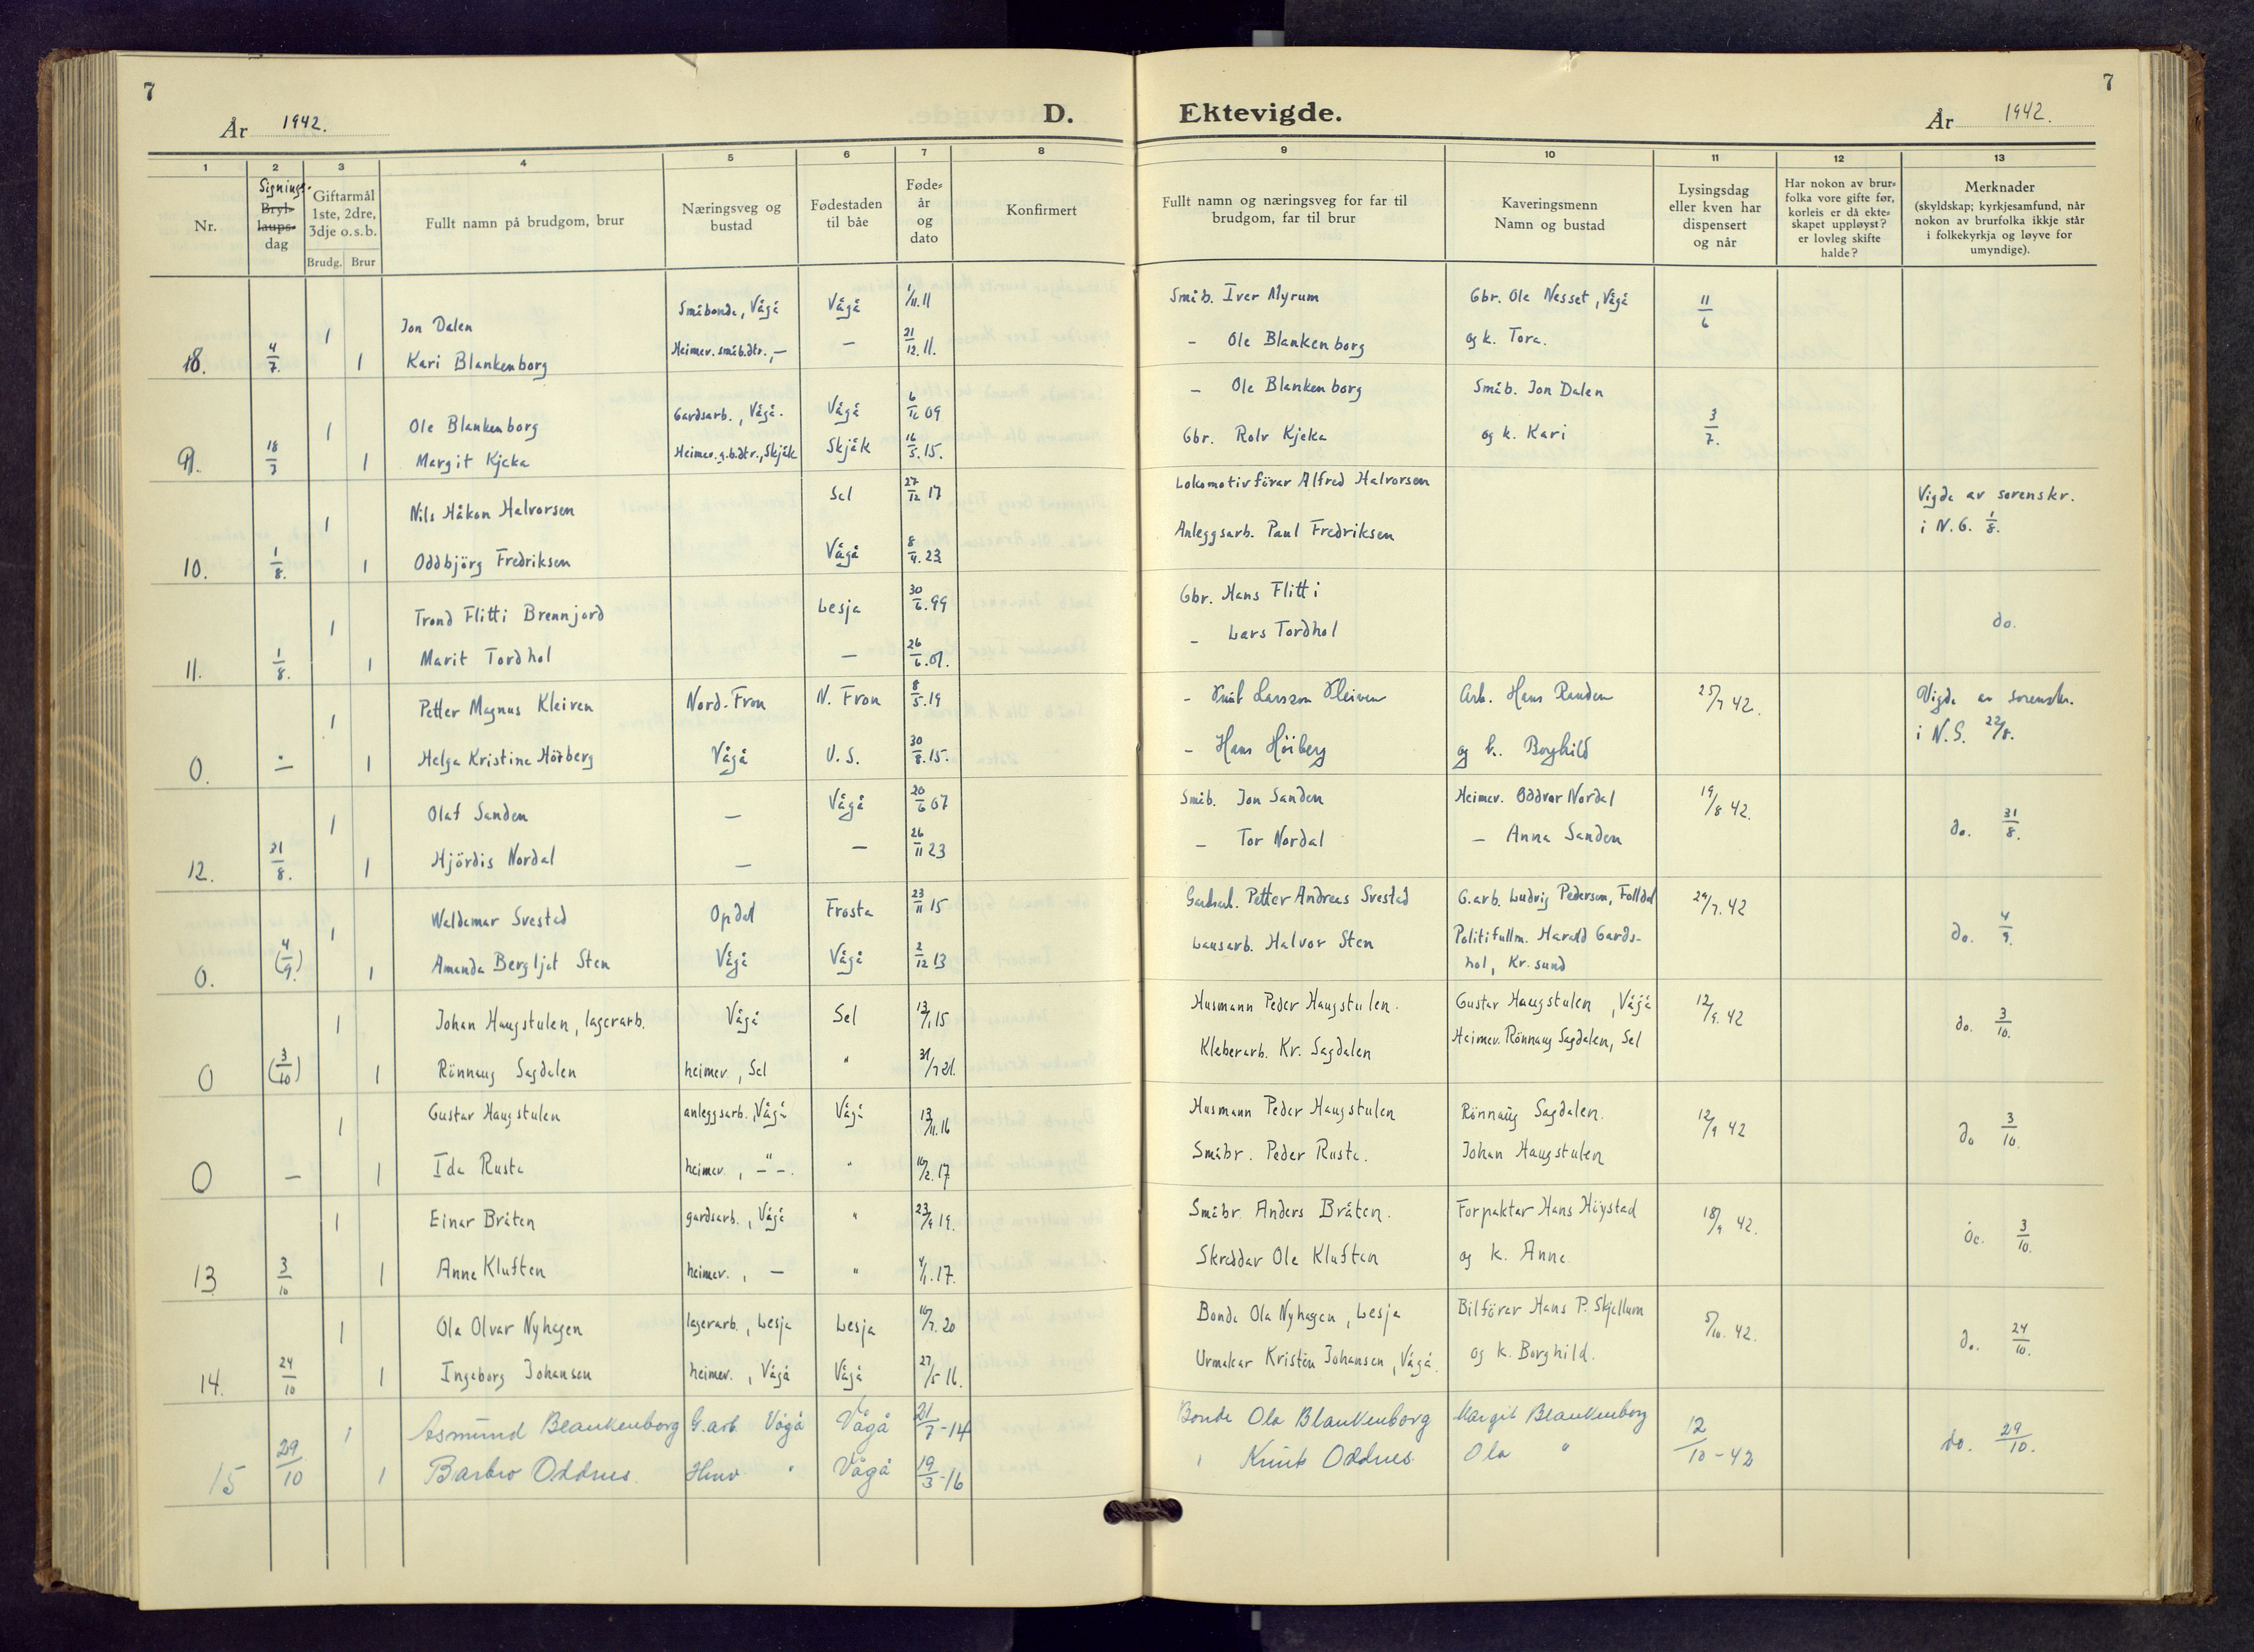 7
År 1942.
D.
Ektevigde.
År 1942.
7
1 2 3 4 5 6 7 8 9 10 11 12 13
Nr.
Signings-
Bryl-
laups-
dag
Giftarmål
1ste, 2dre,
3dje o.s.b.
Brudg. Brur
Fullt namn på brudgom, brur
Næringsveg og
bustad
Fødestaden
til båe
Føde-
år
og
dato
Konfirmert
Fullt namn og næringsveg for far til
brudgom, far til brur
Kaveringsmenn
Namn og bustad
Lysingsdag
eller kven har
dispensert
og når
Har nokon av brur-
folka vore gifte før,
korleis er då ekte-
skapet uppløyst?
er lovleg skifte
halde?
Merknader
(skyldskap; kyrkjesamfund, når
nokon av brurfolka ikkje står
i folkekyrkja og løyve for
umyndige).
1 Jon Dalen Småbonde, Vågå Vågå 1/11.11 Småb. Iver Myrum Gbr. Ole Nesset, Vågå 11/6
8. 4/7. 1 Kari Blankenborg Heimev. småb.dtr., — — 21/12.11. — Ole Blankenborg og k. Tora.
1 Ole Blankenborg Gardsarb., Vågå. Vågå 09 — Ole Blankenborg Småb. Jon Dalen 3/7.
9. 18/7 1 Margit Kjeka Heimev. g.b.dtr., Skjåk Skjåk 16/5.15. Gbr. Rolv Kjeka og k. Kari
1 Nils Håkon Halvorsen Sel 27/12 17 Lokomotivförar Alfred Halvorsen Vigde av sorenskr.
i N.G. 1/8.
10. 1/8. 1 Oddbjörg Fredriksen Vågå 8/4.23 Anleggsarb. Paul Fredriksen
1 Trond Flitti Brennjord Lesja 30/6.99 Gbr. Hans Flitti do.
11. 1/8. 1 Marit Tordhol — 26/6.01. — Lars Tordhol
1 Petter Magnus Kleiven Nord-Fron N. Fron 8/5.19 — Larsson Kleiven Arb. Hans Randen 25/7 42. Vigde av sorenskr.
i N.G. 22/8.
0. — 1 Helga Kristine Höiberg Vågå U.S. 30/8.15. — Hans Höiberg og k. Borghild
1 Olaf Sanden — Vågå 20/6 07 Småb. Jon Sanden Heimev. Oddvar Nordal 19/8 42. do. 31/8.
12. 31/8. 1 Hjördis Nordal — — 26/11 23 — Tor Nordal — Anna Sanden
1 Waldemar Svestad Opdal Frosta 23/11 15 Gardsarb. Petter Andreas Svestad G.arb. Ludvig Pedersen, Folldal 29/7. 42 do. 4/9.
0. (4/9.) 1 Amanda Bergljot Sten Vågå Vågå 2/12 13 Lausarb. Halvor Sten Politifullm. Harald Gards-
hol, Kr.sund
1 Johan Haugstulen, lagerarb. Vågå Sel 13/1 15 Husmann Peder Haugstulen. Gustav Haugstulen, Vågå 12/9. 42 do. 3/10.
0 (3/10) 1 Rönnaug Sagdalen heimev., Sel " 31/7 21. Kleberarb. Kr. Sagdalen Heimev. Rönnaug Sagdalen, Sel
1 Gustav Haugstulen anleggsarb., Vågå Vågå 13/11.16 Husmann Peder Haugstulen Rönnaug Sagdalen. 12/9 42 do 3/10.
0 — 1 Ida Rusta heimev., —"—. " 10/2.17 Småbr. Peder Rusta. Johan Haugstulen
1 Einar Bråten gardsarb., Vågå " 23/9 19. Småbr. Anders Bråten. Forpaktar Hans Höystad 18/9 42. do. 3/10.
13 3/10 1 Anne Kluften heimev., — " 4/1.17. Skreddar Ole Kluften og k. Anne.
1 Ola Olvar Nyhagen lagerarb., Lesja Lesja 10/7.20 Bonde Ola Nyhagen, Lesja Bilförar Hans P. Skjellum 5/10. 42. do. 24/10.
14. 24/10 1 Ingeborg Johansen heimev., Vågå Vågå 27/5 16. Urmakar Kristen Johansen, Vågå. og k. Borghild.
1 Asmund Blankenborg G.arb. Vågå Vågå 21/7-14 Bonde Ola Blankenborg Margit Blankenborg 12/10-42 do. 29/10.
15 29/10 1 Barbro Oddnes. Heimv " Vågå 19/3-16 " Knut Oddnes. Ola "